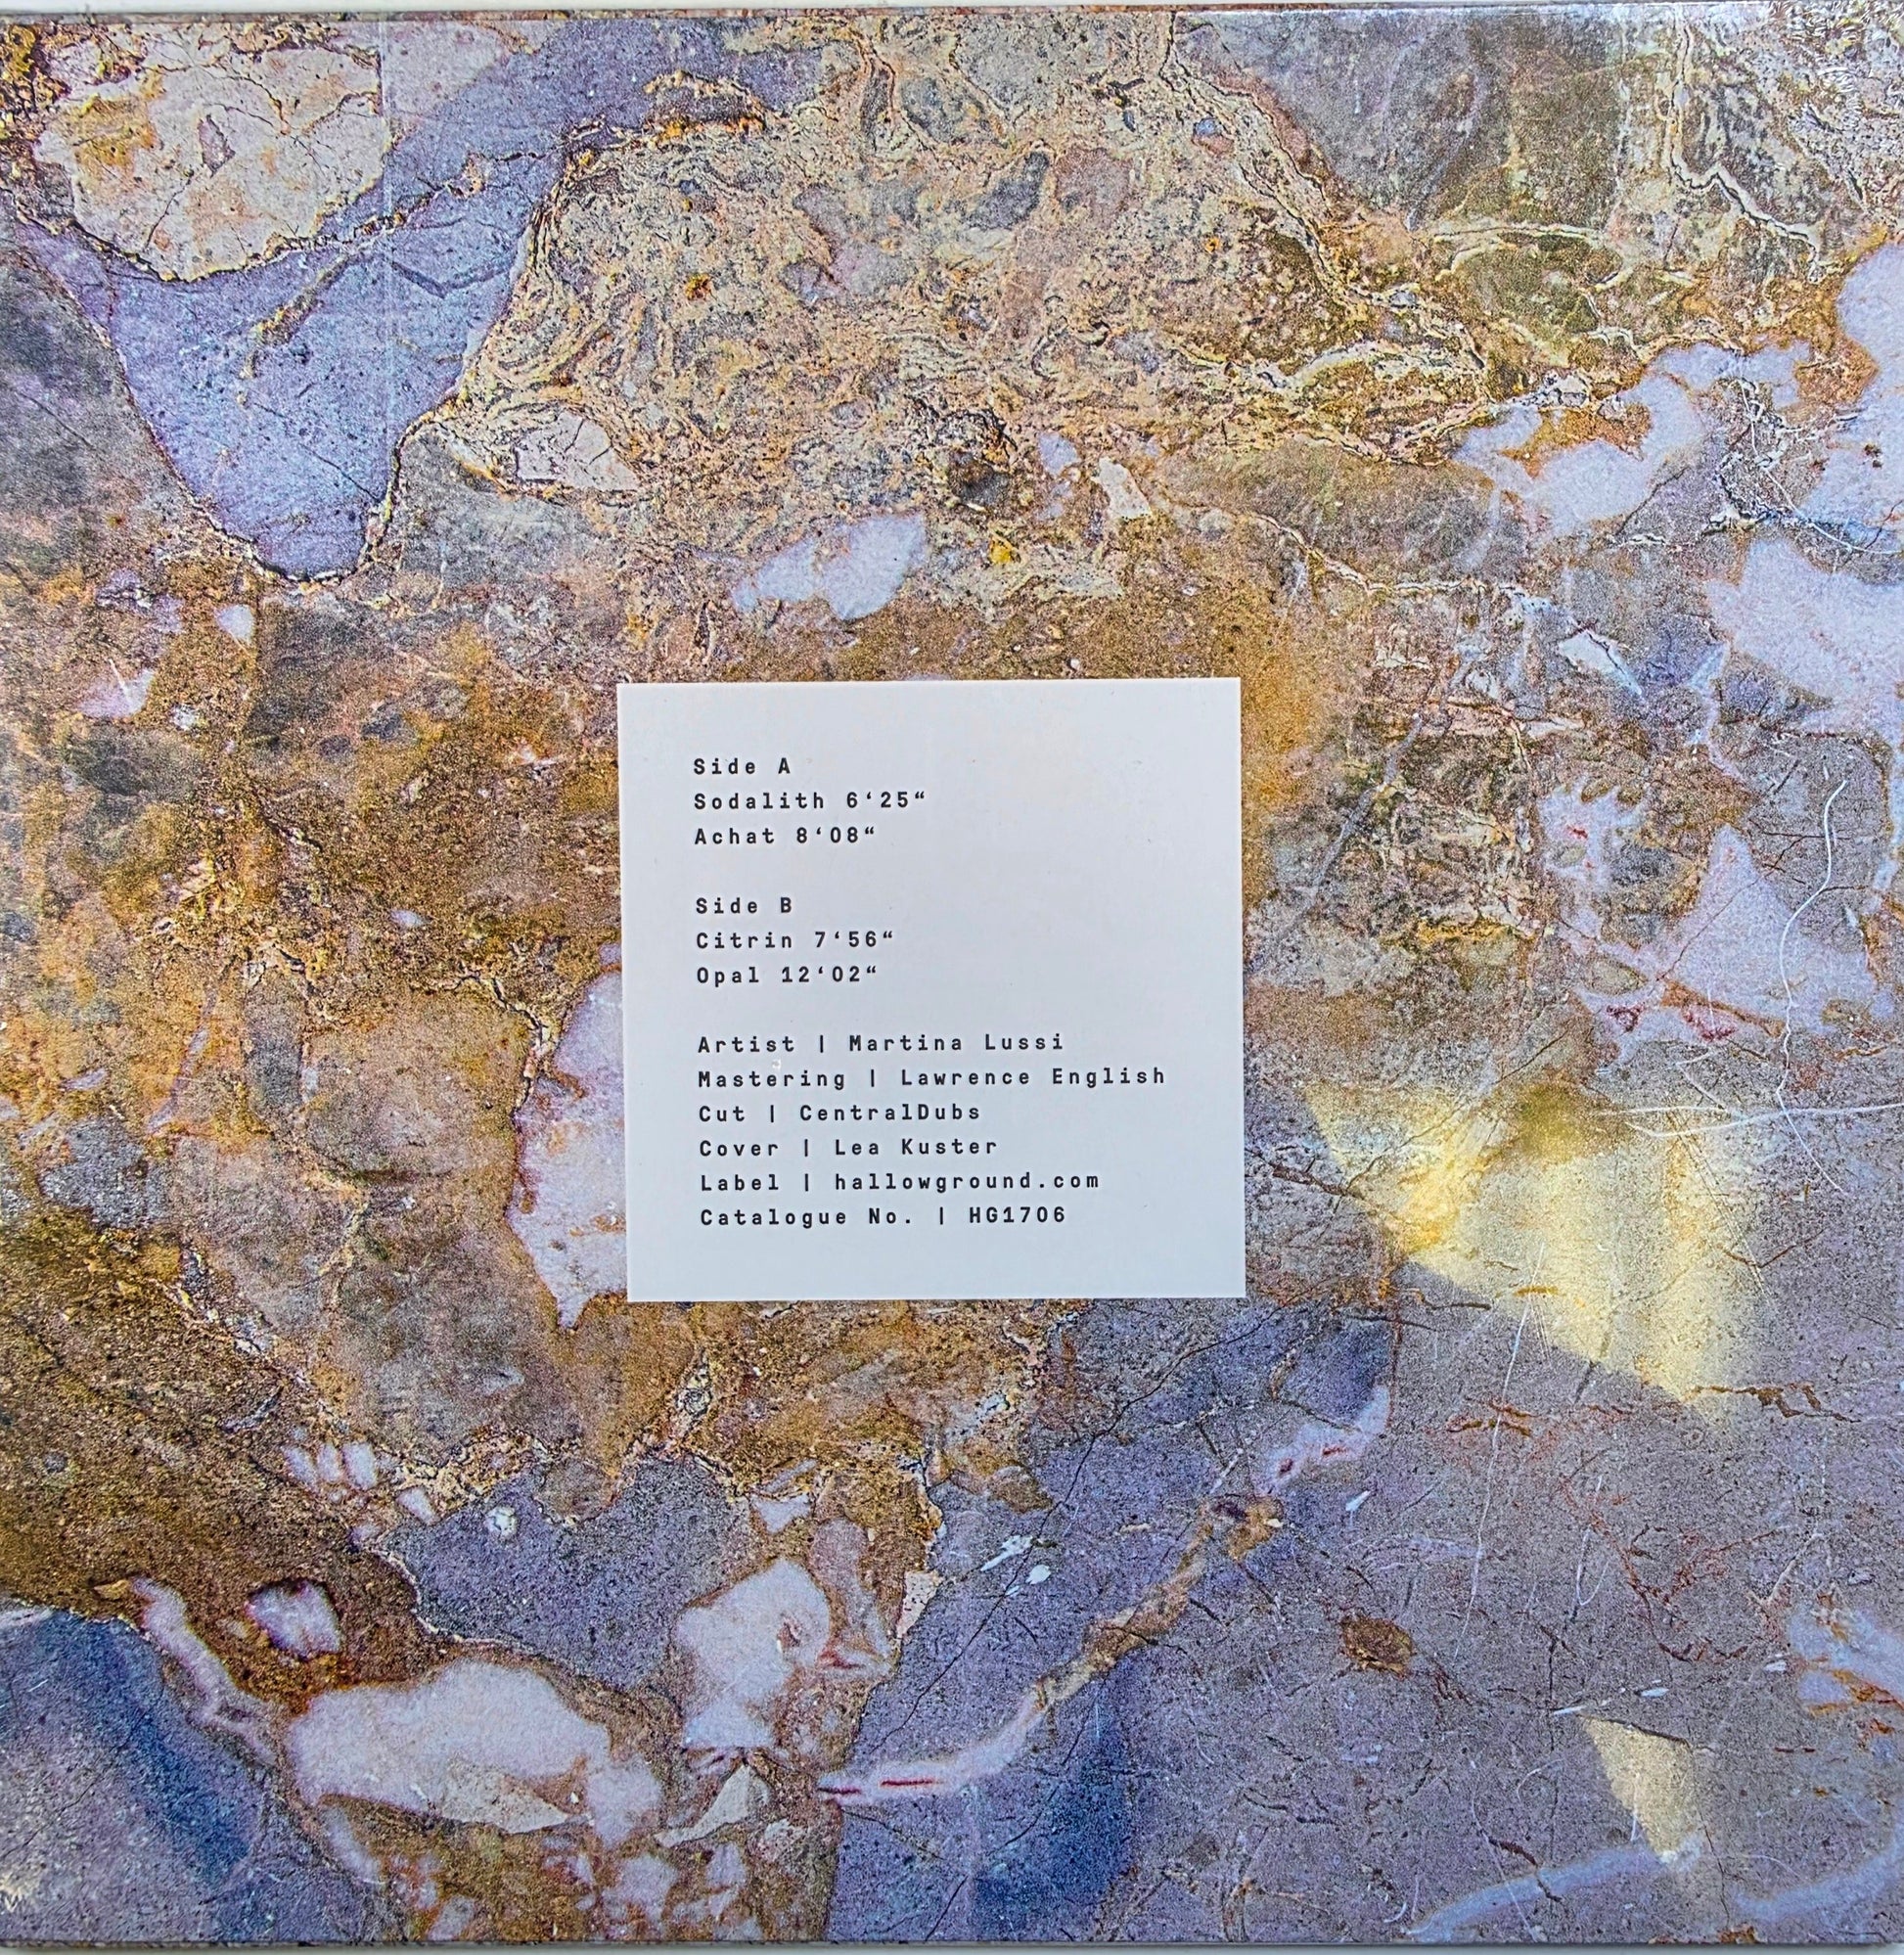 Side A
Sodalith 6‘25“
Achat 8‘08“
Side B
Citrin 7‘56“
Opal 12‘02“
Artist | Martina Lussi
Mastering | Lawrence English
Cut | CentralDubs
Cover | Lea Kuster
Label | hallowground.com
Catalogue No. | HG1706